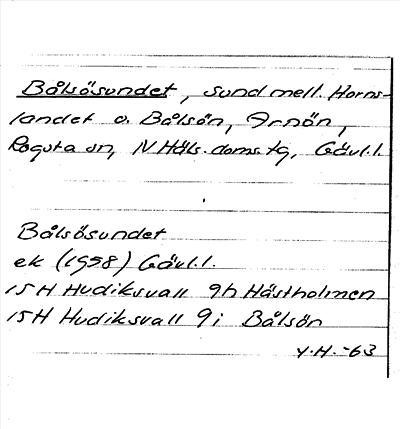 Bålsösundet, sund mell. Horns-
landet o. Bålsön, Arnön,
Rogsta sn, N. Häls. doms. tg, Gävl.l.
Bålsösundet
ek (1958) Gävl.l.
15H Hudiksvall 9h Hästholmen
15H Hudiksvall 9i Bålsön
Y.H. -63